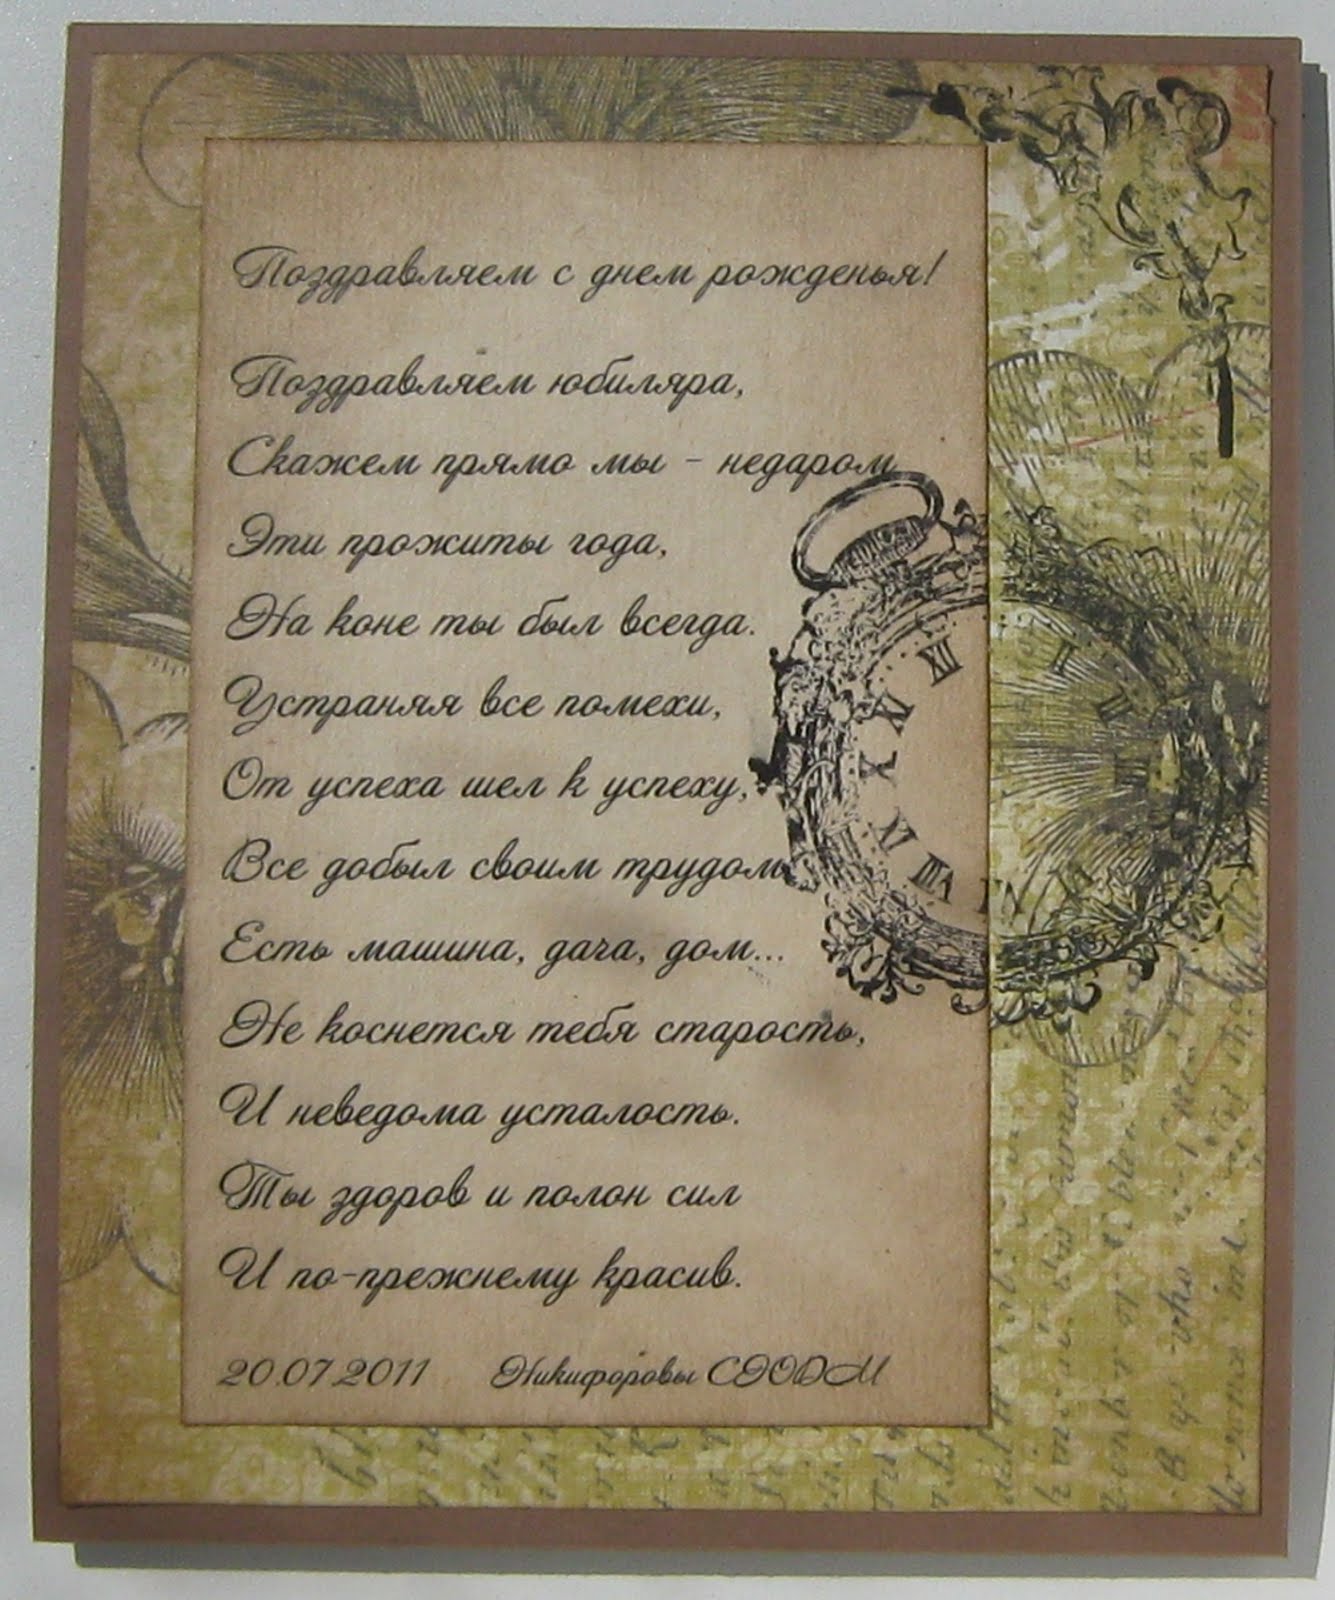 Поздравляем с днем рожденья!
Поздравляем юбиляра,
Скажем прямо мы - недаром
Эти прожиты года,
На коне ты был всегда.
Устраняя все помехи,
От успеха шел к успеху,
Все добыл своим трудом
Есть машина, дача, дом...
Не коснется тебя старость,
И неведома усталость.
Ты здоров и полон сил
И по-прежнему красив.
20.07.2011 Никифоровы СЭОДМ
XII
XI
X
IX
VIII
II
III